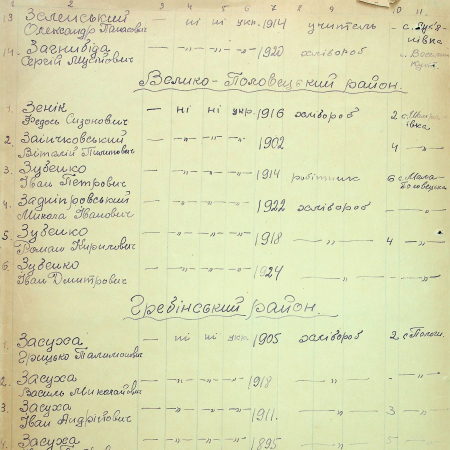 1. 2 3 4 5 6 7 8 9 10 11.
13 Зеленський — ні ні укр. 1914 учитель -
Олександр Панасович нівка
14. Загнибіда — -"- -"- -"- 1920 хлібороб -
Сергій
Велико-Половецький район.
1. Зенік — ні ні укр. 1916 хлібороб 2
Федось Сизонович івка
2. Заінчковський — -"- -"- -"- 1902 4 -"-
Віталій Пилипович
3. Зубенко — -"- -"- -"- 1914 робітник 6 с. Мала
Іван Петрович Половецька
4. Задніпровський — -"- -"- -"- 1922 хлібороб - -"-
Микола Іванович
5. Зубенко — -"- -"- -"- 1918 -"- 4 -"-
Роман Кирилович
6. Зубенко — -"- -"- -"- 1924 -"- - -"-
Іван Дмитрович
Гребінський район.
1. Засуха — ні ні укр. 1905 хлібороб 2. с. Пологи.
Грицько
2. Засуха — -"- -"- -"- 1918 -"- - -"-
Василь Миколайович
3. Засуха — -"- -"- -"- 1911. -"- 3 -"-
Іван Андрійович
4. Засуха — -"- -"- -"- 1895 -"- 5 -"-